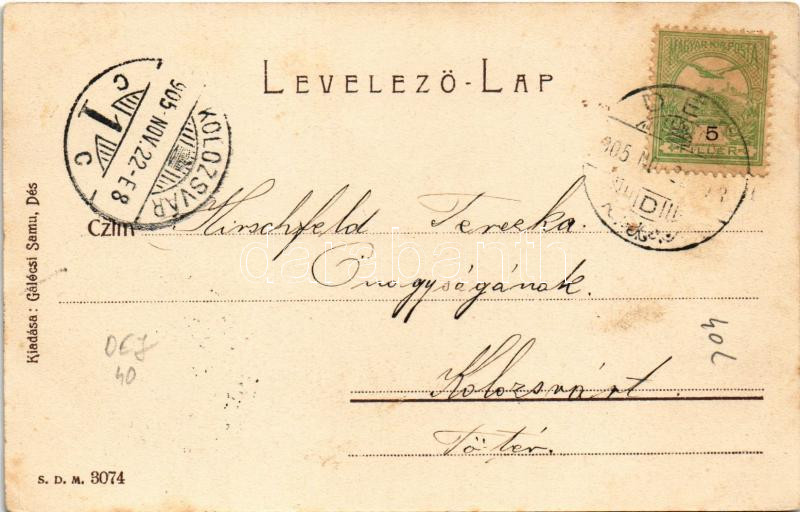 LEVELEZŐ-LAP
MAGYAR·KIR·POSTA
5
FILLÉR
C
1
C
905 NOV. 22-E8
KOLOZSVÁR
DÉS
905
D
Czím Hirschfeld Terezka.
Őnagyságának.
Kolozsvárt.
Főtér.
Kiadása: Gálócsi Samu, Dés
DEJ
40
40L
S. D. M. 3074
darabanth